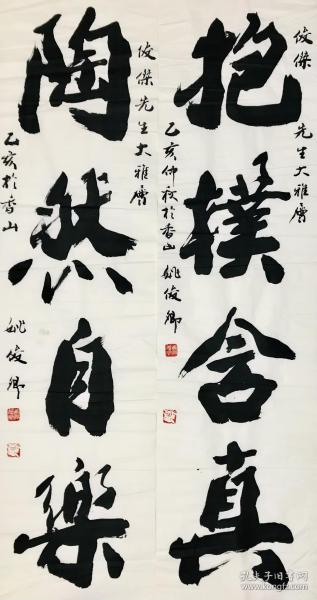 俊傑先生大雅屬
抱樸含真
乙亥仲秋於香山 姚俊卿
俊傑先生大雅屬
陶然自樂
乙亥於香山
姚俊卿
孔夫子旧书网